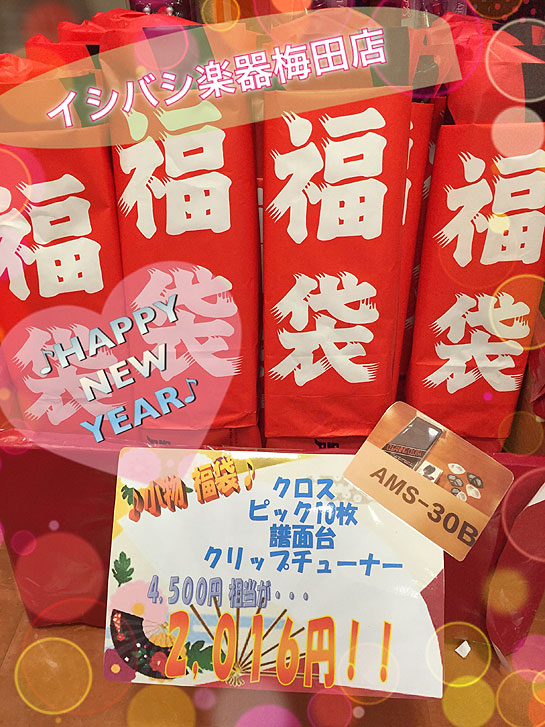 イシバシ楽器梅田店
福袋
福袋
福袋
福袋
♪HAPPY
NEW
YEAR♪
♪小物 福袋♪
クロス
ピック10枚
譜面台
クリップチューナー
4,500円 相当が・・・
2,016円!!
AMS-30B